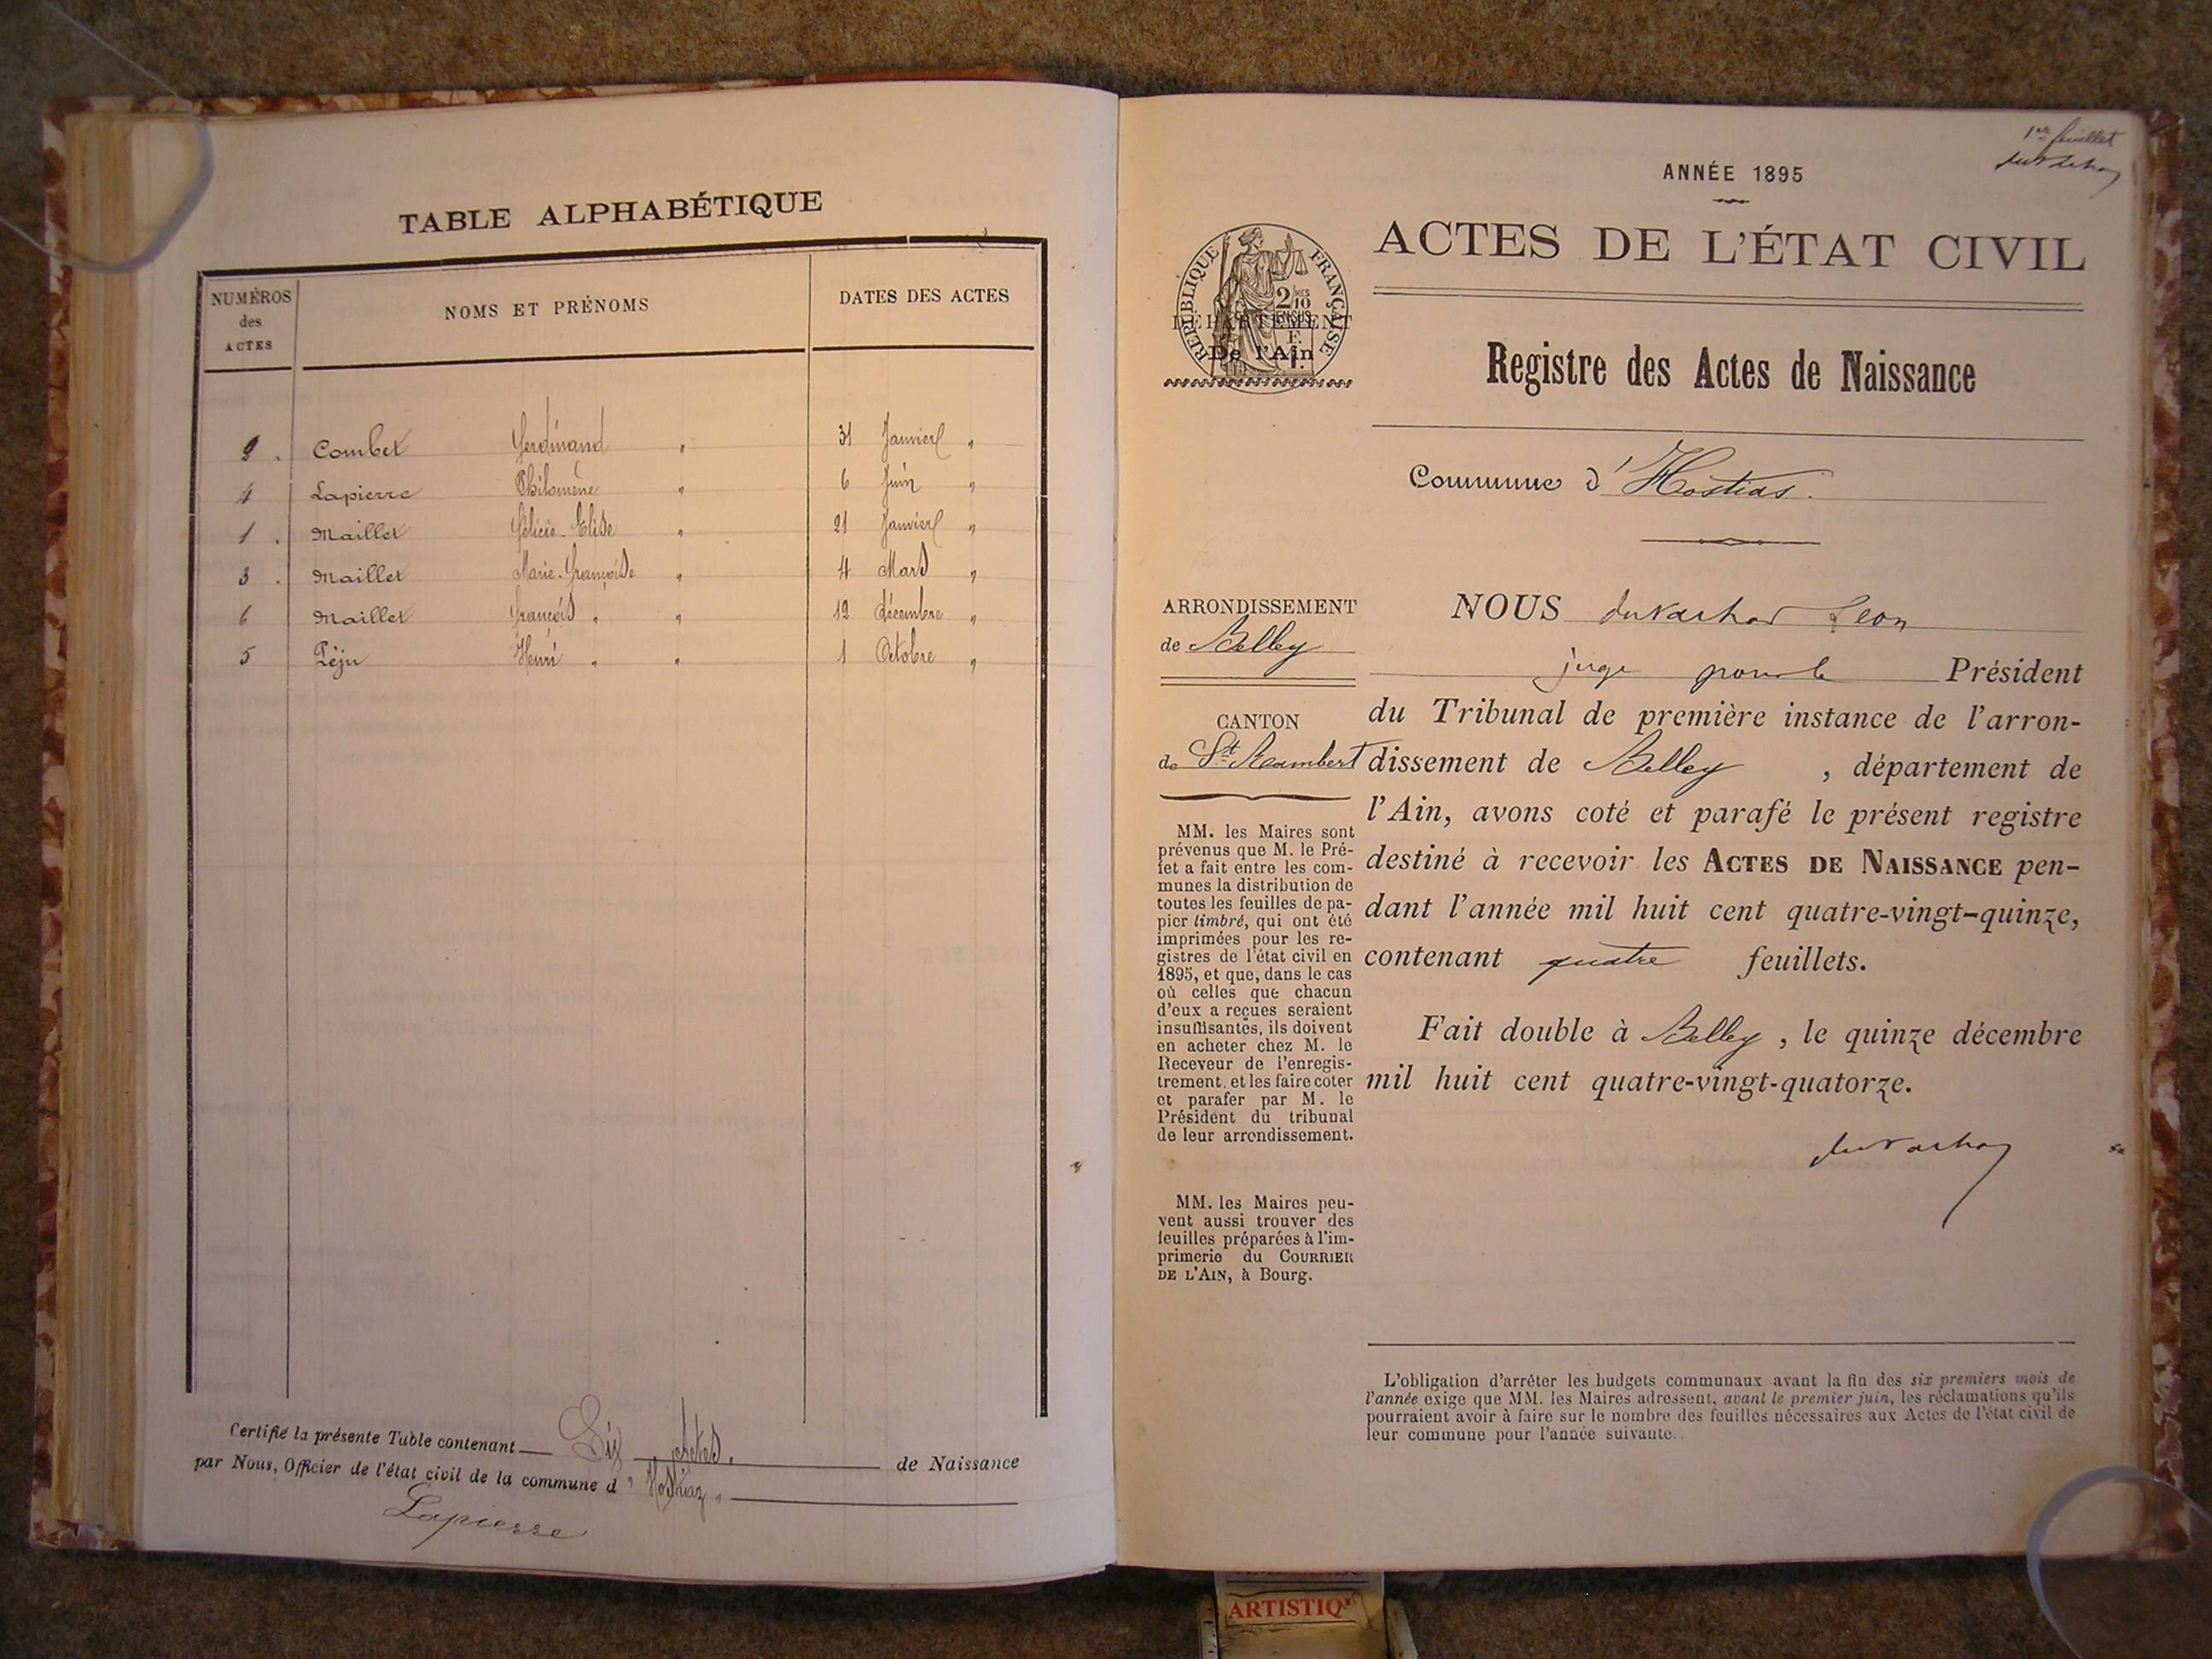 TABLE ALPHABÉTIQUE
NUMÉROS
des
ACTES
NOMS ET PRÉNOMS
DATES DES ACTES
2. Combet Ferdinand " 31 Janvier "
4 Lapierre Philomène " 6 Juin "
1. Maillet Félicie-Elise " 21 Janvier "
3. Maillet Marie-Françoise " 4 Mars "
6 Maillet François " " 12 décembre "
5 Péju Henri " " 1 Octobre "
Certifié la présente Table contenant Six Actes. de Naissance
par Nous, Officier de l'état civil de la commune d'Hostiaz "
Lapierre
1er feuillet
ANNÉE 1895
ACTES DE L'ÉTAT CIVIL
RÉPUBLIQUE FRANÇAISE
2/10
EN SUS
DÉPARTEMENT
De l'Ain
Registre des Actes de Naissance
Commune d'Hostias.
ARRONDISSEMENT
de Belley
CANTON
de St Rambert
MM. les Maires sont
prévenus que M. le Pré-
fet a fait entre les com-
munes la distribution de
toutes les feuilles de pa-
pier timbré, qui ont été
imprimées pour les re-
gistres de l'état civil en
1895, et que, dans le cas
où celles que chacun
d'eux a reçues seraient
insuffisantes, ils doivent
en acheter chez M. le
Receveur de l'enregis-
trement, et les faire coter
et parafer par M. le
Président du tribunal
de leur arrondissement.
MM. les Maires peu-
vent aussi trouver des
feuilles préparées à l'im-
primerie du COURRIER
DE L'AIN, à Bourg.
NOUS Léon
juge pour le Président
du Tribunal de première instance de l'arron-
dissement de Belley, département de
l'Ain, avons coté et parafé le présent registre
destiné à recevoir les ACTES DE NAISSANCE pen-
dant l'année mil huit cent quatre-vingt-quinze,
contenant quatre feuillets.
Fait double à Belley, le quinze décembre
mil huit cent quatre-vingt-quatorze.
L'obligation d'arrêter les budgets communaux avant la fin des six premiers mois de
l'année exige que MM. les Maires adressent, avant le premier juin, les réclamations qu'ils
pourraient avoir à faire sur le nombre des feuilles nécessaires aux Actes de l'état civil de
leur commune pour l'année suivante.
ARTISTIQ